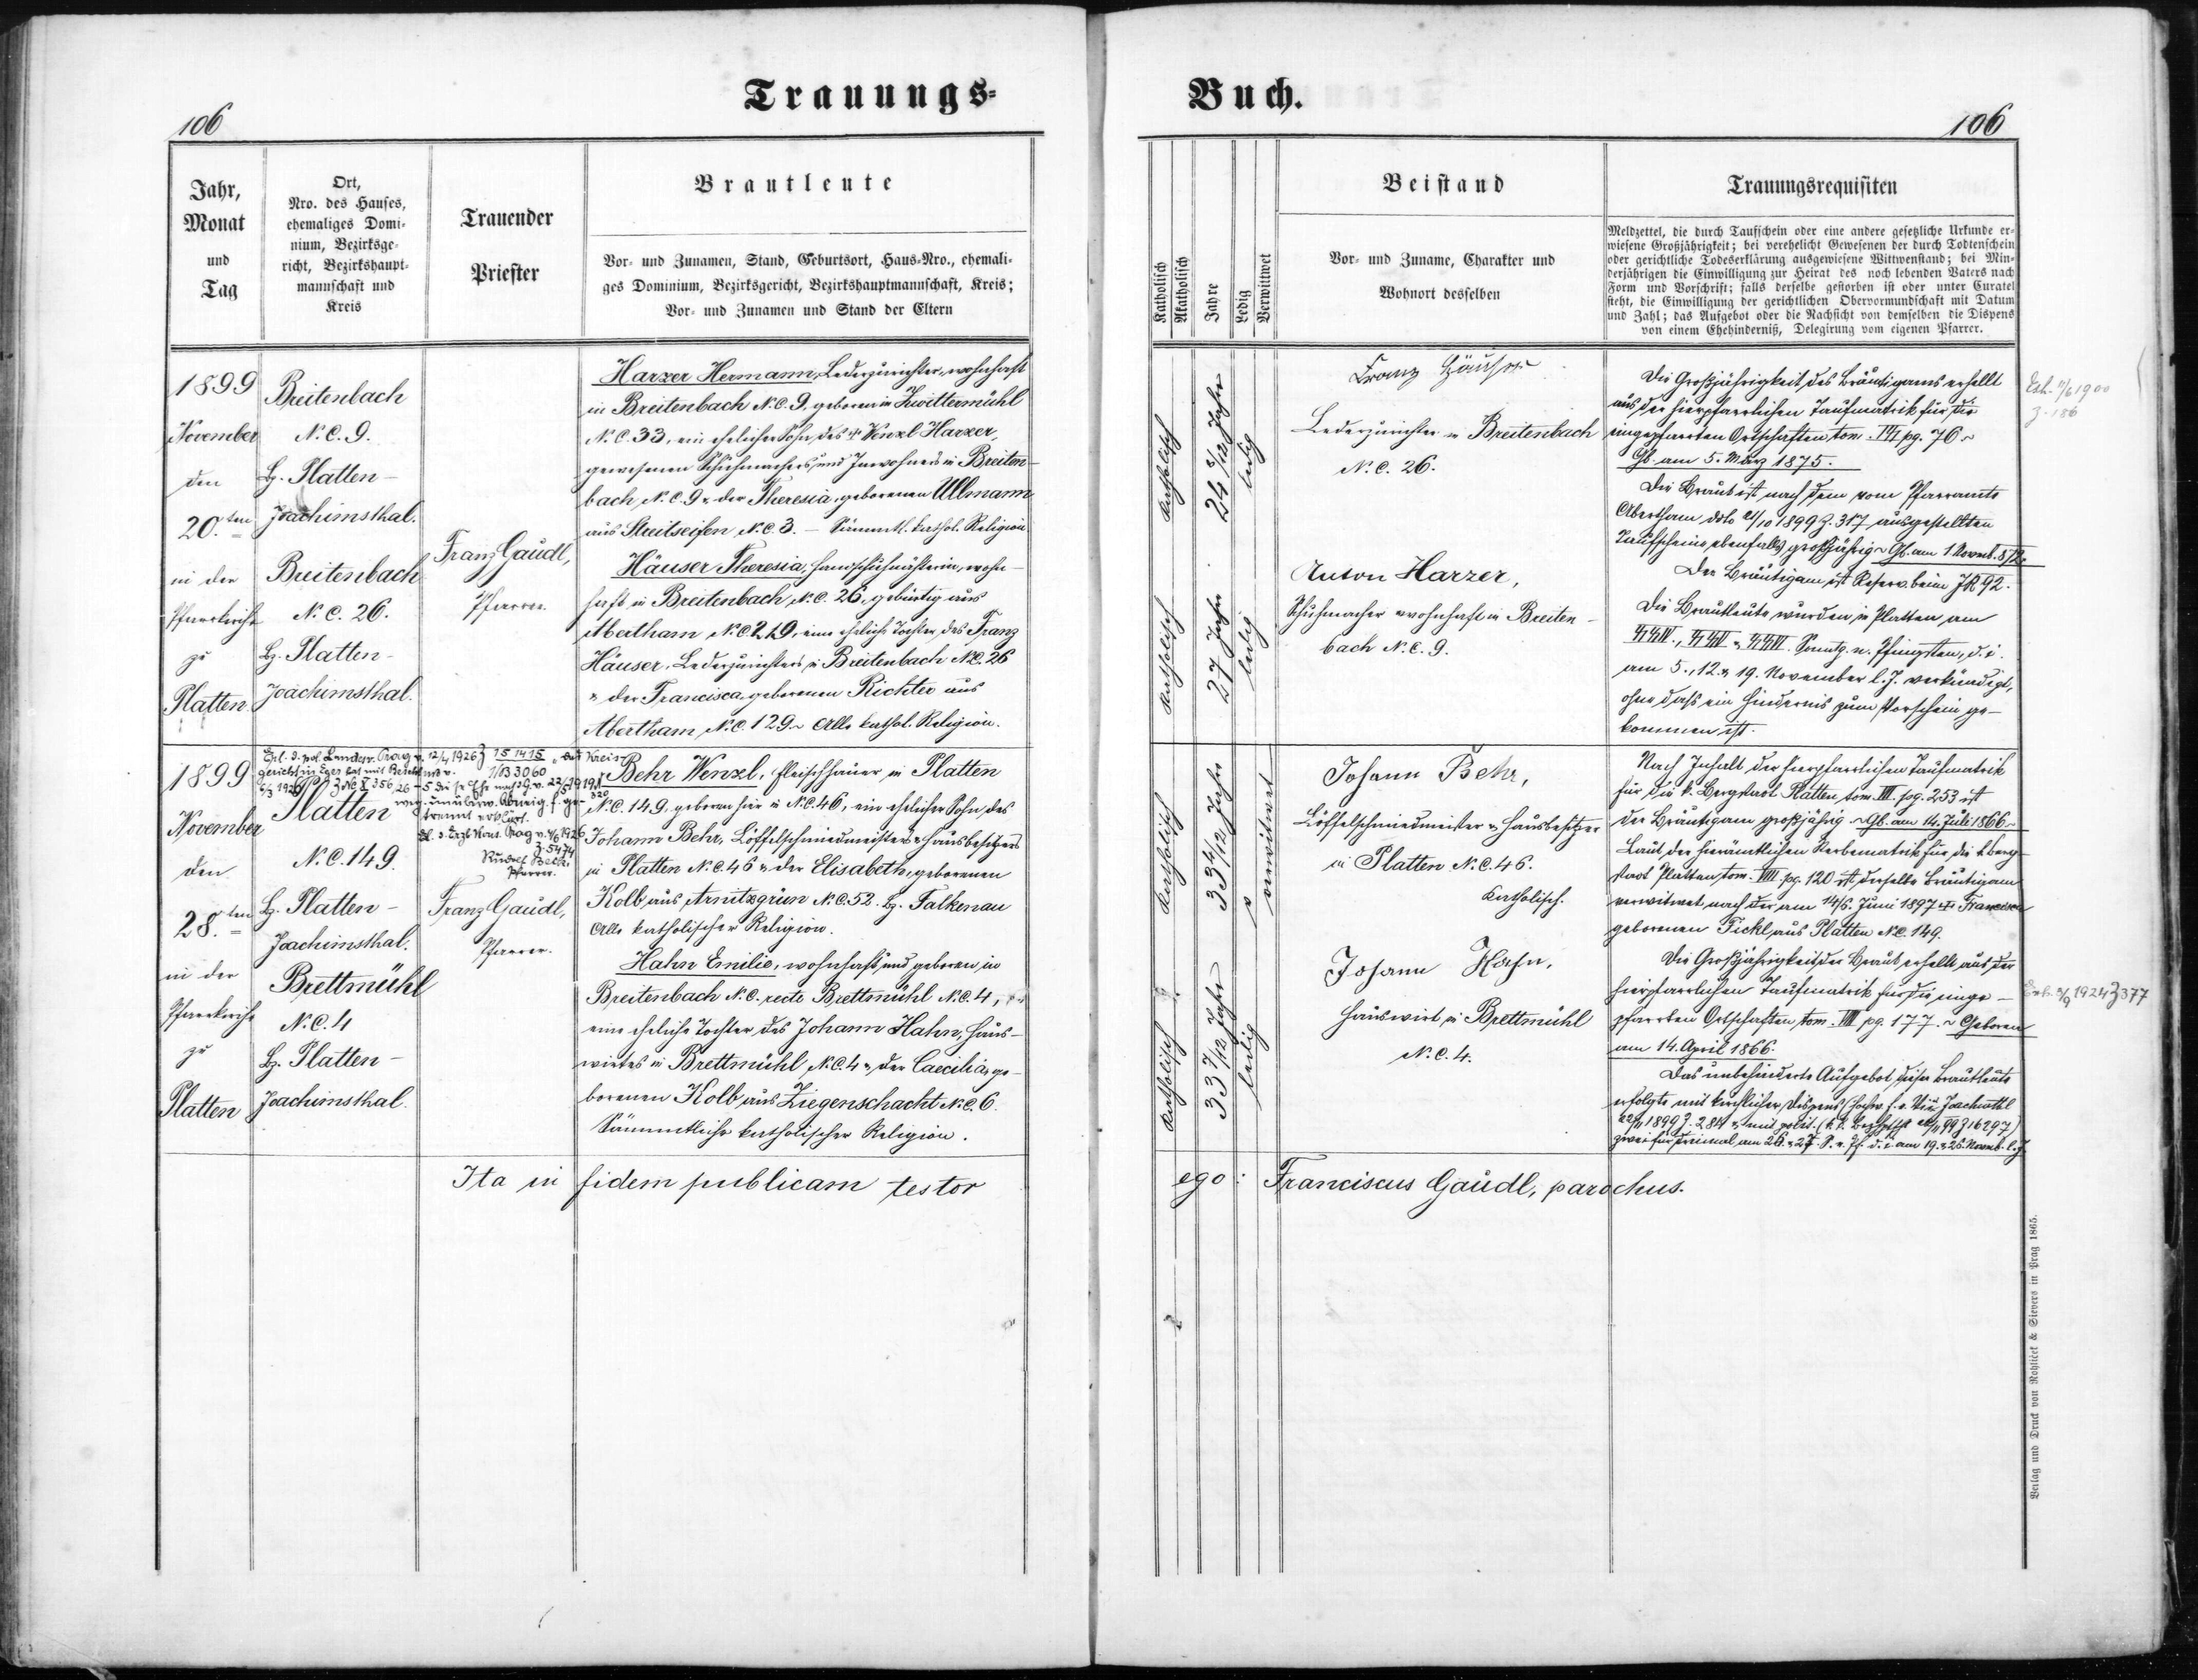 Trauungs-
106
Jahr,
Monat
und
Tag
Ort,
Nro. des Hauses,
ehemaliges Domi-
nium, Bezirksge-
richt, Bezirkshaupt-
mannschaft und
Kreis
Trauender
Priester
Brautleute
Vor- und Zunamen, Stand, Geburtsort, Haus-Nro., ehemali-
ges Dominium, Bezirksgericht, Bezirkshauptmannschaft, Kreis;
Vor- und Zunamen und Stand der Eltern
1899
November
den
20.ten
in der
Pfarrkirche
zu
Platten
Breitenbach
N.C. 9.
Bz. Platten-
Joachimsthal.
Breitenbach
N.C. 26.
Bz. Platten-
Joachimsthal.
Franz Gaudl,
Pfarrer.
Harzer Hermann, Lederzurichter, wohnhaft
in Breitenbach N.C. 9, geboren in Zwittermühl
N.C. 33, ein ehelicher Sohn des + Wenzl Harzer,
gewesenen Schuhmachers und Inwohners in Breiten-
bach N.C. 9 u. der Theresia, geborenen Ullmann
aus Streitseifen N.C. 3. – Sämmtl. kathol. Religion
Häuser Theresia, Handschuhnähterin, wohn-
haft in Breitenbach N.C. 26, gebürtig aus
Abertham N.C. 219, eine eheliche Tochter des Franz
Häuser, Lederzurichters in Breitenbach N.C. 26
u. der Francisca, geborenen Richter aus
Abertham N.C. 129. Alle kathol. Religion.
1899
November
den
28.ten
in der
Pfarrkirche
zu
Platten
Erl. d. pol. Landesv. Prag v. 12/4 1926 Z 151415 "Das Kreis-
gericht in Eger hat mit Bescheid v.
1/B 3060
6/3 1926 Z Nc I 356/26-5 diese Ehe nach G. v. 22/5 1919
320
weg. unüberw. Abneig. f. ge-
trennt erklärt.
Erl. d. Erzb. Kons. Prag v. 4/6 1926
Z. 5474
Rudolf
Pfarrer.
Platten
N.C. 149
Bz. Platten-
Joachimsthal.
Brettmühl
N.C. 4
Bz. Platten-
Joachimsthal.
Franz Gaudl,
Pfarrer.
Behr Wenzl, Fleischhauer in Platten
N.C. 149, geboren hier in N.C. 46, ein ehelicher Sohn des
Johann Behr, Löffelschmiedmeisters u. Hausbesitzers
in Platten N.C. 46 u. der Elisabeth, geborenen
Kolb aus Arnitzgrün N.C. 52. Bz. Falkenau
Alle katholischer Religion.
Hahn Emilie, wohnhaft und geboren in
Breitenbach N.C. recte Brettmühl N.C. 4,
eine eheliche Tochter des Johann Hahn, Haus-
wirtes in Brettmühl N.C. 4 u. der Caecilia, ge-
borenen Kolb aus Ziegenschacht N.C. 6.
Sämmtliche katholischer Religion.
Ita in fidem publicam testor
Buch.
106
Katholisch
Akatholisch
Jahre
Ledig
Verwittwet
Beistand
Vor- und Zuname, Charakter und
Wohnort desselben
Trauungsrequisiten
Meldzettel, die durch Taufschein oder eine andere gesetzliche Urkunde er-
wiesene Großjährigkeit; bei verehelicht Gewesenen der durch Todtenschein
oder gerichtliche Todeserklärung ausgewiesene Wittwenstand; bei Min-
derjährigen die Einwilligung zur Heirat des noch lebenden Vaters nach
Form und Vorschrift; falls derselbe gestorben ist oder unter Curatel
steht, die Einwilligung der gerichtlichen Obervormundschaft mit Datum
und Zahl; das Aufgebot oder die Nachsicht von demselben die Dispens
von einem Ehehinderniß, Delegirung vom eigenen Pfarrer.
katholisch
24 8/12 Jahre
ledig
katholisch
27 Jahre
ledig
Franz Häuser
Lederzurichter in Breitenbach
N.C. 26.
Anton Harzer,
Schuhmacher wohnhaft in Breiten-
bach N.C. 9.
Die Großjährigkeit des Bräutigams erhellt
aus der hierpfarrlichen Taufmatrik für die
eingepfarrten Ortschaften tom. pg. 76
Gb. am 5. März 1875.
Die Braut ist nach dem vom Pfarramte
Abertham ddto 21/10 1899 Z. 317 ausgestellten
Taufscheine ebenfalls großjährig. Gb. am 1. Novemb. 872.
Der Bräutigam ist Reserv. beim IR 92.
Die Brautleute wurden in Platten am
Sonntg. n. Pfingsten, d. i.
am 5., 12. u. 19. November l. J. verkündigt,
ohne dass ein Hindernis zum Vorschein ge-
kommen ist.
1900
Z. 186
katholisch
33 4/12 Jahre
verwitwet
katholisch
33 7/12 Jahre
ledig
Johann Behr,
Löffelschmiedmeister u. Hausbesitzer
in Platten N.C. 46.
katholisch.
Johann Hahn,
Hauswirt in Brettmühl
N.C. 4.
Nach Inhalt der hierpfarrlichen Taufmatrik
für die k. Bergstadt Platten tom. III. pg. 253 ist
der Bräutigam großjährig. Gb. am 14. Juli 1866.
Laut der hierämtlichen Sterbematrik für die k. Berg-
stadt Platten tom. VIII pg. 120 ist derselbe Bräutigam
verwitwet nach der am 14/6. Juni 1897 + Francisca
geborenen Fickl aus Platten N.C. 149.
Die Großjährigkeit der Braut erhellt aus der
hierpfarrlichen Taufmatrik für die einge-
pfarrten Ortschaften tom. VIII pg. 177. Geboren
am 14. April 1866.
Das unbehinderte Aufgebot dieser Brautleute
erfolgte mit kirchlicher Dispens (hochw. f. e. Vic. Joachimthl
22/11 1899 Z. 284 u. mit polit. (k. k. Bezhptsft 99 Z 16297)
zwei für dreimal am 26. u. 27. S. n. Pf. d. i. am 19. u. 26. Novemb. l. J.
1924 Z 377
ego: Franciscus Gaudl, parochus.
Verlag und Druck von Rohliček & Sievers in Prag 1865.